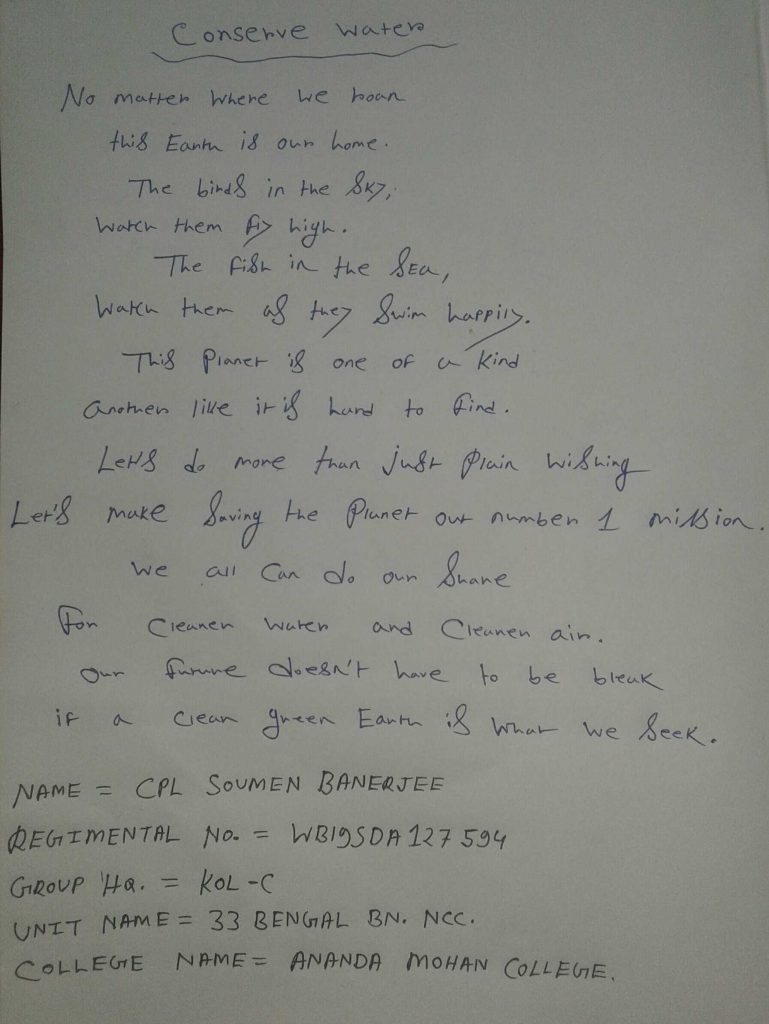 Conserve water
No matter where we roam
this Earth is our home.
The birds in the sky,
watch them fly high.
The fish in the sea,
watch them as they swim happily.
This planet is one of a kind
another like it is hard to find.
Let's do more than just plain wishing
Let's make saving the planet our number 1 mission.
we all can do our share
for cleaner water and cleaner air.
our future doesn't have to be bleak
if a clean green Earth is what we seek.
NAME = CPL SOUMEN BANERJEE
REGIMENTAL NO. = WB19SDA127594
GROUP HQ. = KOL-C
UNIT NAME = 33 BENGAL BN. NCC.
COLLEGE NAME = ANANDA MOHAN COLLEGE.